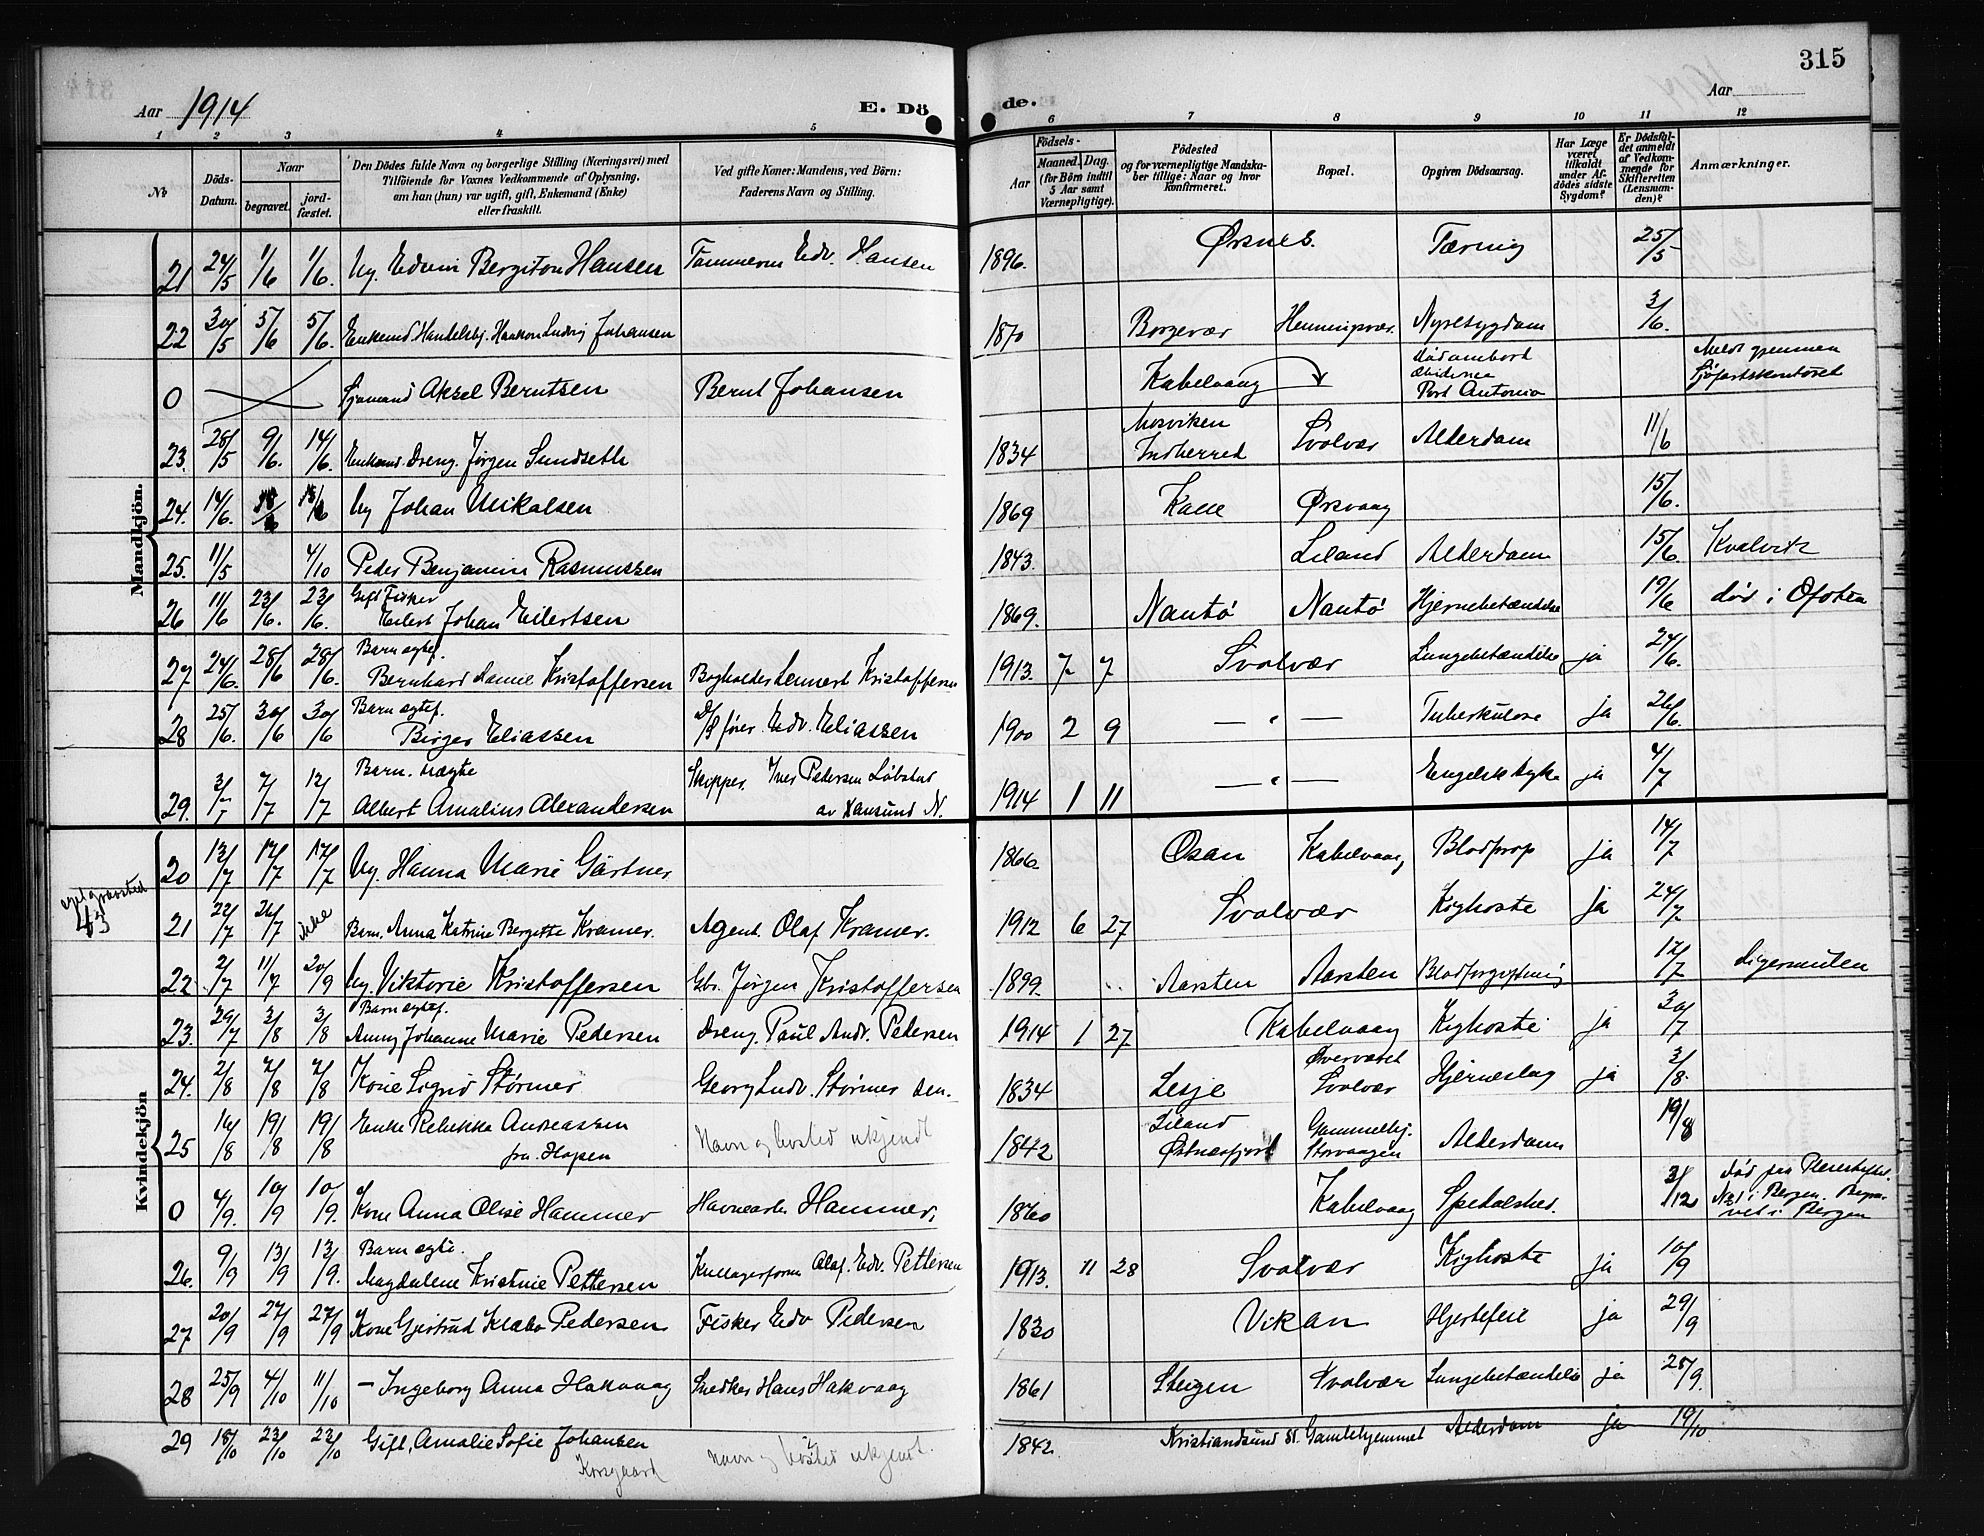 315
Aar 1914 E. Dö de. Aar
1 2 3 4 5 6 7 8 9 10 11 12
No Döds-Datum. Naar begravet. jord-fæstet. Den Dödes fulde Navn og borgerlige Stilling (Næringsvei) med Tilföiende for Voxnes Vedkommende af Oplysning, om han (hun) var ugift, gift, Enkemand (Enke) eller fraskilt. Ved gifte Koner: Mandens, ved Börn: Faderens Navn og Stilling. Födsels- Aar Maaned. Dag. (for Börn indtil 5 Aar samt Værnepligtige). Födested og for værnepligtige Mandskaber tillige: Naar og hvor Konfirmeret. Bopæl. Opgiven Dödsaarsag. Har Læge været tilkaldt under Afdödes sidste Sygdom? Er Dödsfaldet anmeldt af Vedkommende for Skifteretten (Lensmanden)? Anmærkninger.
Mandkjön.
21 24/5 1/6 1/6. Ug. Edvin Bergiton Hansen Tømmerm Edv. Hansen 1896. Ørsnes. Tæring 25/5
22 30/5 5/6 5/6. Enkemd. Handelsbj. Haakon Ludvig Johansen 1870 Borgevær Henningsvær. Nyresygdom 3/6.
0 Sjømand Aksel Berntsen Bernt Johansen Kabelvaag død ombord Port Antonio Meldt gjennem Sjøfartskontoret
23. 28/5 9/6. 14/6. Enkemd. Dreng. Jørgen Sundseth 1834 Mosviken Indherred Svolvær Alderdom 11/6
24. 14/6. 18/6 Ug Johan Mikalsen 1869 Kalle Ørsvaag 15/6.
25. 11/5 4/10 Peder Benjamin Rasmussen 1843. Liland Alderdom 15/6. Kvalvik
26 11/6 23/6. 23/6. Gift Fisker Eilert Johan Eilertsen 1869. Nautø Nautø Hjernebetændelse 19/6 død i Ofoten
27 24/6. 28/6 28/6. Barn ægtef. Bernhard Kristoffersen Bogholder Lennert Kristoffersen 1913. 7 7 Svolvær Lungebetændelse ja 24/6.
28 25/6. 30/6 30/6 Barn ægtef. Birger Eliassen D/S fører. Edv. Eliassen 1900 2 9 — " — Tuberkulose ja 26/6.
29. 3/7 7/7 12/7 Barn. uægte Albert Amalius Alexandersen Skipper. Iver Pedersen Løbstad av N. 1914 1 11 — " — Engelsk syke ja 4/7
Kvindekjön
20 12/7 17/7 17/7 Ug. Hanna Marie Gärtner 1866 Osan Kabelvaag Blodprop ja 14/7
eget gravsted 43
21 22/7 26/7 ikke Barn. Anna Katrine Bergitte Kramer. Agent. Olaf Kramer. 1912 6 27 Svolvær Kighoste ja 24/7
22. 2/7 11/7 20/9 Ug. Viktorie Kristoffersen Gbr. Jørgen Kristoffersen 1899. Aarsten Aarsten Blodforgiftning 17/7 Digermulen
23. 29/7 3/8 3/8 Barn ægtef. Anny Johanne Marie Pedersen Dreng. Paul Andr. Pedersen 1914 1 27 Kabelvaag Kighoste ja 30/7
24. 2/8 7/8 7/8 Kone Sigrid Størmer Georg Ludv. Størmer sen. 1834 Lesje Øverværet Svolvær Hjerneslag ja 3/8.
25 16/8 19/8 19/8 Enke Rebekka Andreassen fra Hopen Navn og bosted ukjendt 1842 Liland Østnesfjord Gammelhj. Storvaagen Alderdom 19/8
0 4/9. 10/9 10/9. Kone Anna Olise Hammer Havnearb. Hammer. 1860 Kabelvaag Spedalshed. 3/12 død paa Pleiestiftel. No 1 i Bergen. Begravet i Bergen
26. 9/9 13/9 13/9. Barn ægte. Magdalene Kristine Pettersen Kullagerform Olaf. Edv. Pettersen 1913. 11 28 Svolvær Kighoste ja 10/9
27 20/9 27/9 27/9 Kone Gjertrud Klæbo Pedersen Fisker Edv Pedersen 1830 Vikan Hjertefeil ja 29/9
28 25/9 4/10 11/10 — Ingeborg Anna Hakvaag Snedker Hans Hakvaag 1861 Steigen Svolvær Lungebetændelse ja 28/9.
29 18/10 23/10 23/10 Gift, Amalie Sofie Johansen Korsgaard navn og bosted ukjendt. 1842. Kristiansund N. Gamlehjemmet Alderdom ja 19/10